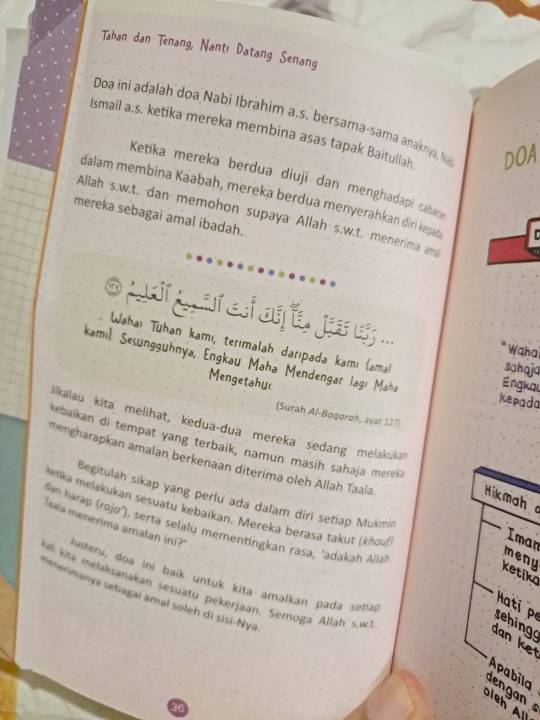 Tahan dan Tenang, Nanti Datang Senang
Doa ini adalah doa Nabi Ibrahim a.s. bersama-sama anaknya, Nabi
Ismail a.s. ketika mereka membina asas tapak Baitullah.
Ketika mereka berdua diuji dan menghadapi cabaran
dalam membina Kaabah, mereka berdua menyerahkan diri kepada
Allah s.w.t. dan memohon supaya Allah s.w.t. menerima amal
mereka sebagai amal ibadah.
... رَبَّنَا تَقَبَّلْ مِنَّآ إِنَّكَ أَنتَ ٱلسَّمِيعُ ٱلْعَلِيمُ ١٢٧
"Wahai Tuhan kami, terimalah daripada kami (amal
kami). Sesungguhnya, Engkau Maha Mendengar lagi Maha
Mengetahui.
(Surah Al-Baqarah, ayat 127)
Jikalau kita melihat, kedua-dua mereka sedang melakukan
kebaikan di tempat yang terbaik, namun masih sahaja mereka
mengharapkan amalan berkenaan diterima oleh Allah Taala.
Begitulah sikap yang perlu ada dalam diri setiap Mukmin
ketika melakukan sesuatu kebaikan. Mereka berasa takut (khauf)
dan harap (roja'), serta selalu mementingkan rasa, 'adakah Allah
Taala menerima amalan ini?'
Justeru, doa ini baik untuk kita amalkan pada setiap
kali kita melaksanakan sesuatu pekerjaan. Semoga Allah s.w.t.
menerimanya sebagai amal soleh di sisi-Nya.
36
DOA
"Wahai
sahaja
Engkau
kepada
Hikmah
Imam
meny
ketika
Hati pe
sehingg
dan ket
Apabila
dengan s
oleh All